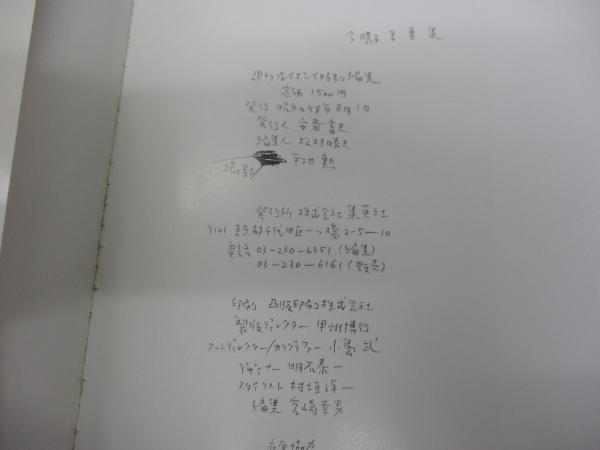 今陽子写真集
週刊プレイボーイ特別編集
定価 1500円
発行 昭和58年8月1日
発行人
編集人 松村勝
撮影 平地勲
発行所 株式会社集英社
〒101 東京都千代田区一ツ橋2-5-10
電話 03-230-6351 (編集)
03-230-6161 (販売)
印刷 凸版印刷株式会社
製版ディレクター 甲州博行
アートディレクター/カリグラファー 小島武
デザイナー 明石泰一
スタイリスト 村垣洋一
編集 宮崎幸男
衣裳協力